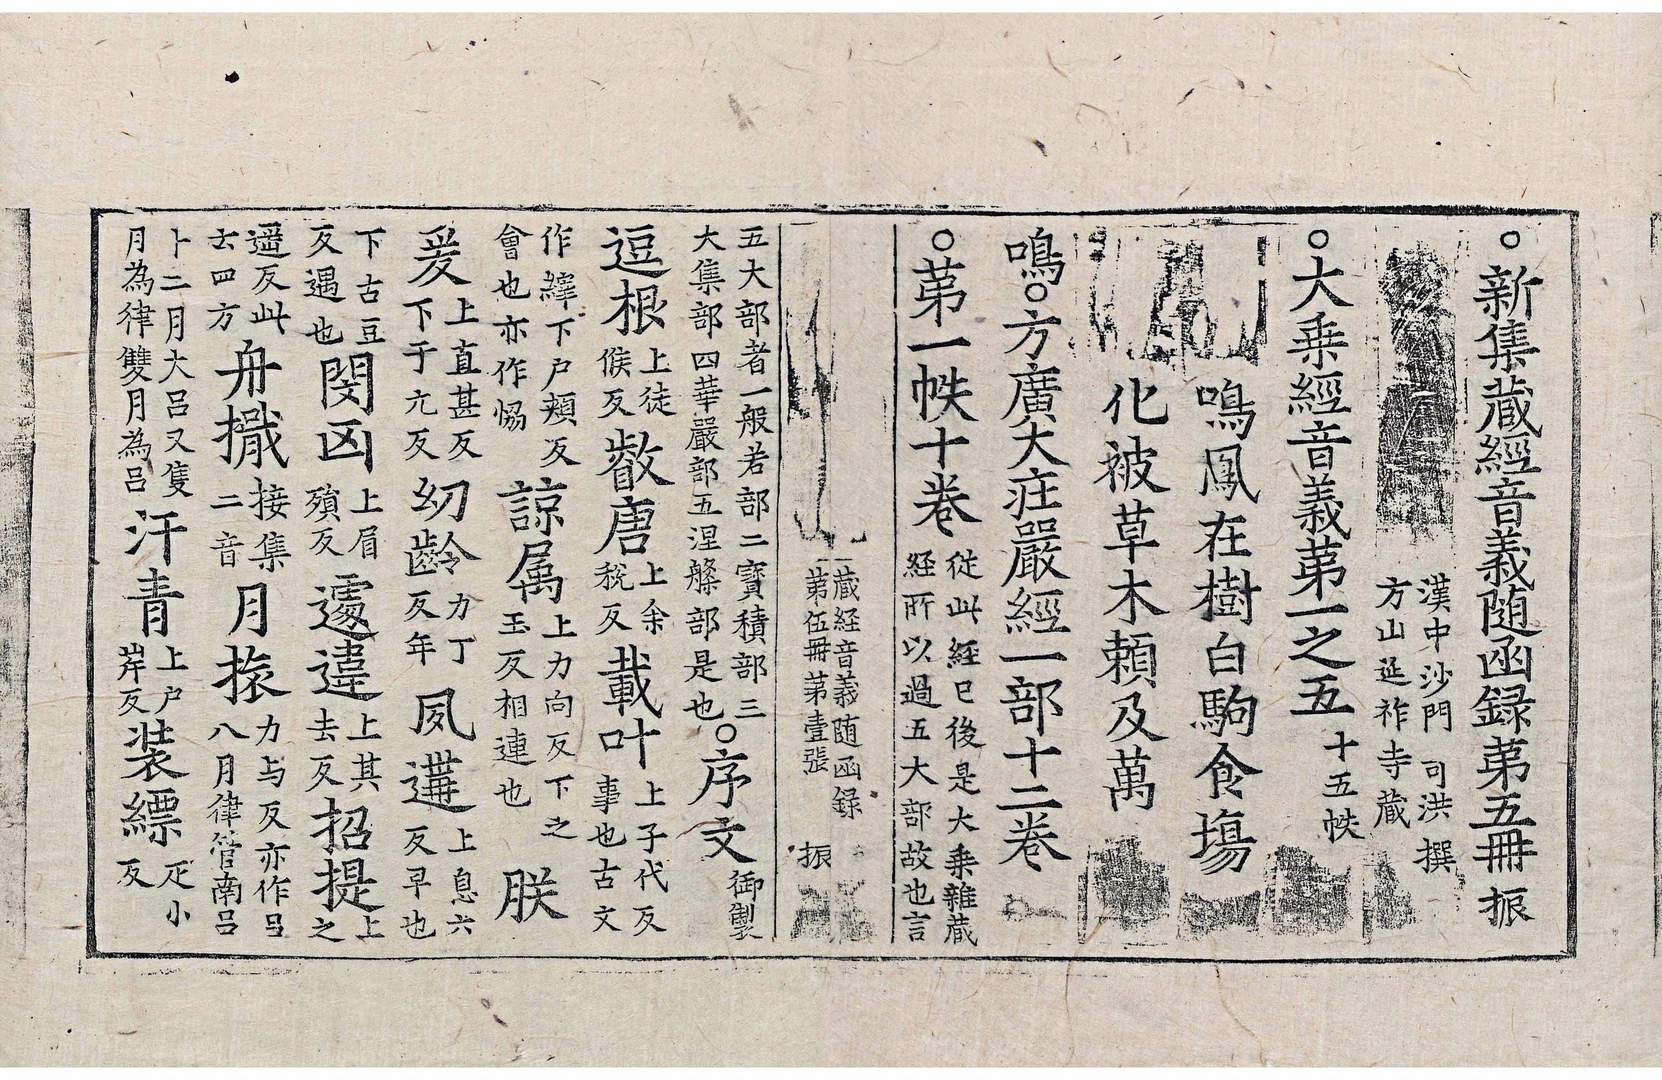 ○新集藏經音義随函録第五冊 振
漢中沙門 可洪 撰
方山延祚寺藏
○大乗經音義第一之五 十五帙
鳴鳳在樹白駒食塲
化被草木頼及萬
鳴○方廣大莊嚴經一部十二卷
○第一帙十卷
従此経已後是大乗雜藏
経所以過五大部故也言
藏経音義随函録
第伍冊第壹張 振
五大部者一般若部二寳積部三
大集部四華嚴部五涅槃部是也○序文
御製
逗根
上徒
候反
叡唐
上余
税反
載叶
上子代反
事也古文
作繹下户頬反
會也亦作恊
諒属
上力向反下之
玉反相連也
朕
爰
上直甚反
下于元反
幼齡
力丁
反年
夙遘
上息六
反早也
下古豆
反遇也
閔凶
上眉
殞反
遽違
上其
去反
招提
上
之
遥反此
古四方
舟檝
接集
二音
月旅
力与反亦作吕
八月律管南吕
卜二月大吕又隻
月為律雙月為吕
汗青
上户
岸反
装縹
疋小
反